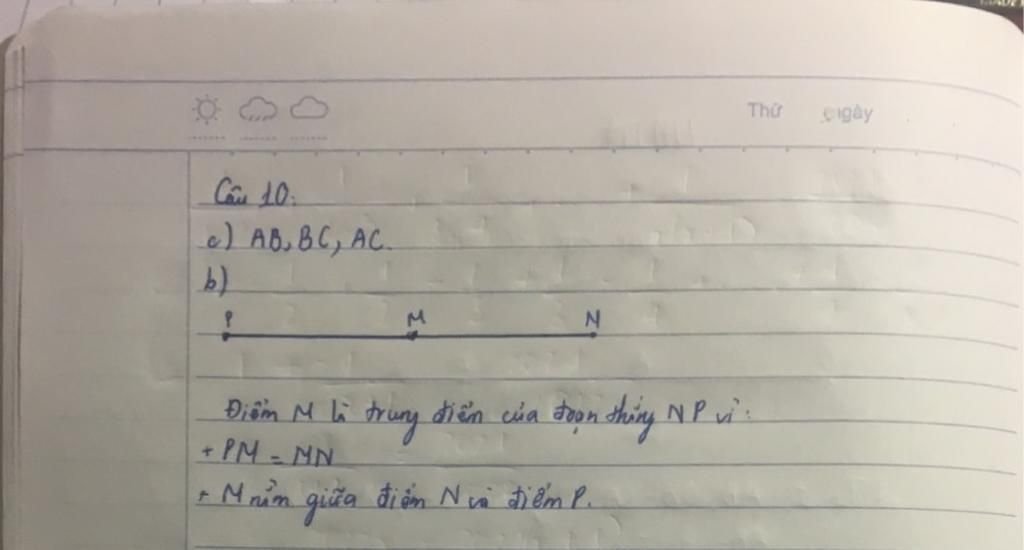 Thứ Ngày
Câu 10:
a) AB, BC, AC.
b)
P M N
Điểm M là trung điểm của đoạn thẳng NP vì:
+ PM = MN
+ M nằm giữa điểm N và điểm P.